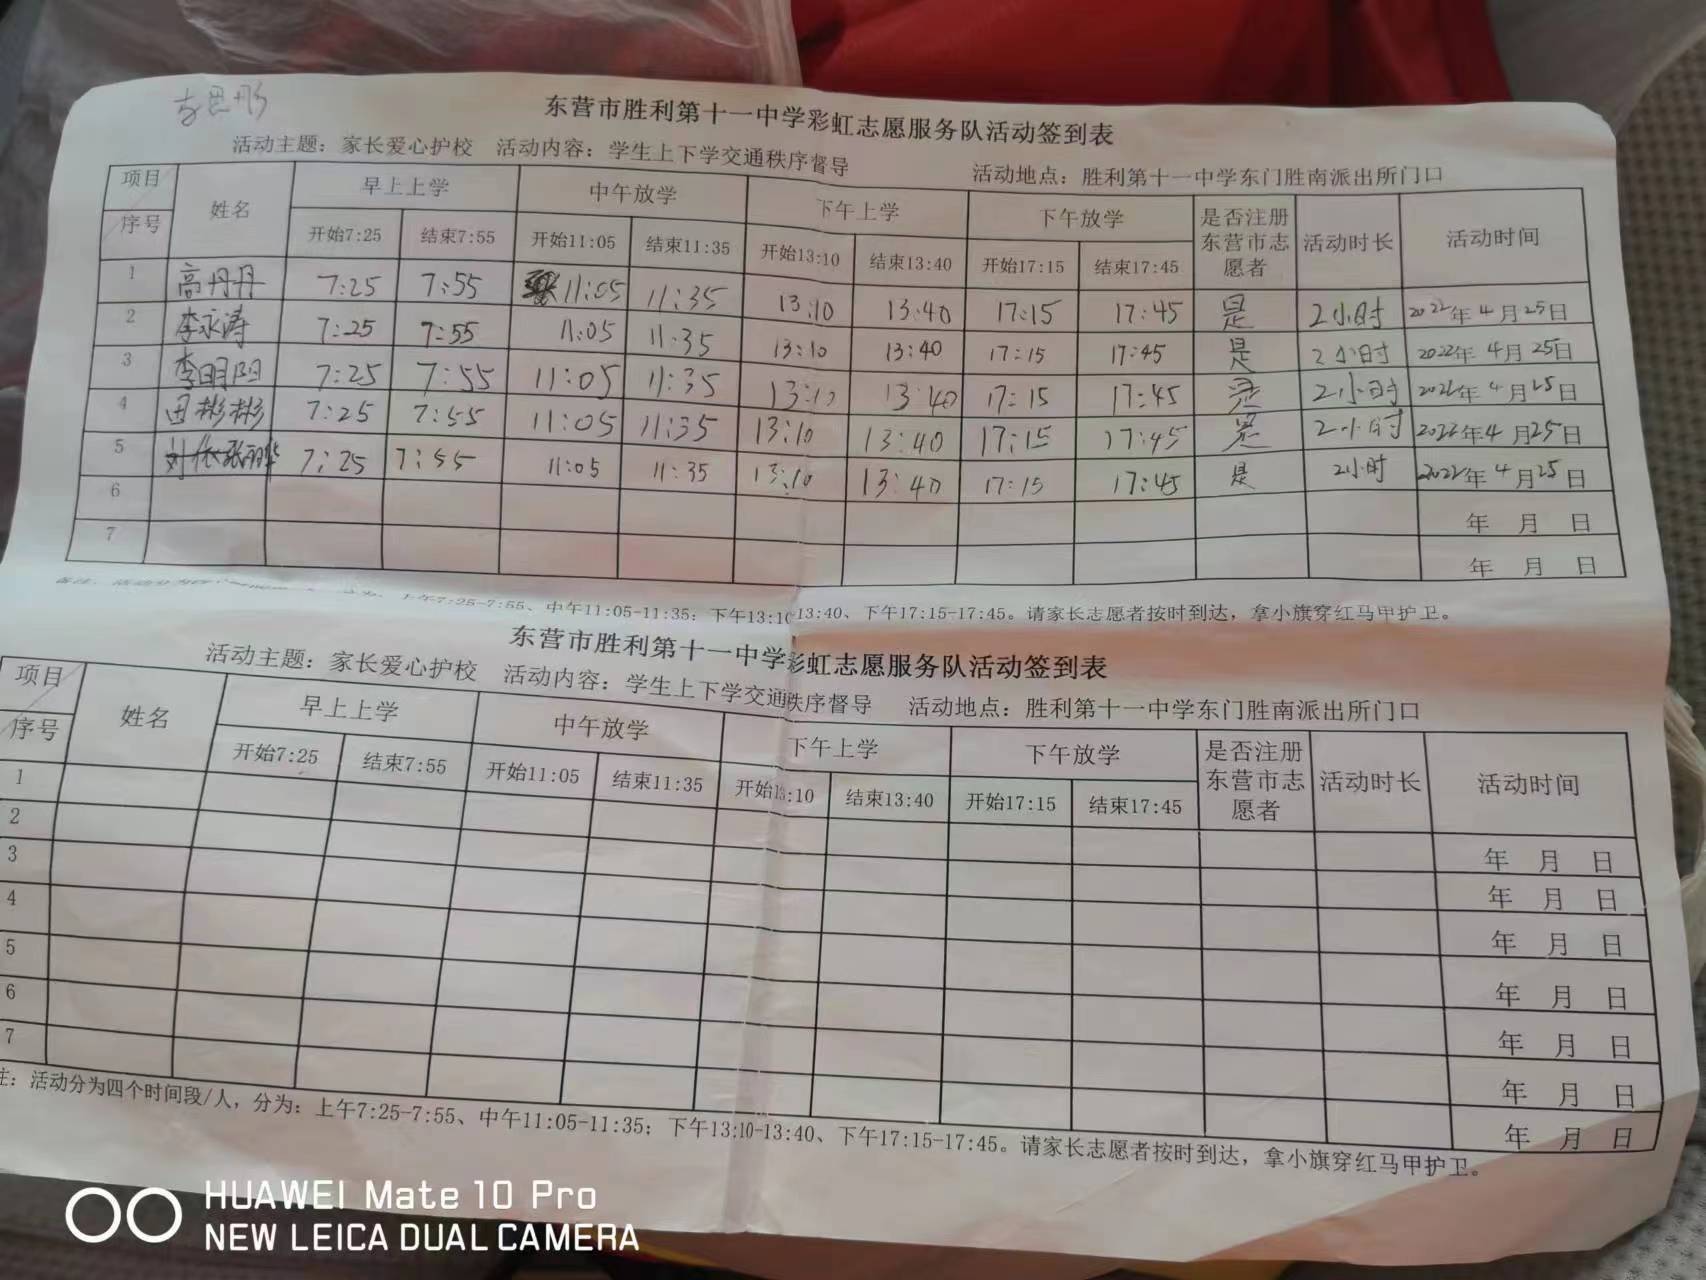 思彤
东营市胜利第十一中学彩虹志愿服务队活动签到表
活动主题：家长爱心护校 活动内容：学生上下学交通秩序督导 活动地点：胜利第十一中学东门胜南派出所门口
项目 序号 姓名 早上上学 中午放学 下午上学 下午放学 是否注册东营市志愿者 活动时长 活动时间
开始7:25 结束7:55 开始11:05 结束11:35 开始13:10 结束13:40 开始17:15 结束17:45
1 高丹丹 7:25 7:55 11:05 11:35 13:10 13:40 17:15 17:45 是 2小时 2022年4月25日
2 李永涛 7:25 7:55 11:05 11:35 13:10 13:40 17:15 17:45 是 2小时 2022年4月25日
3 李明阳 7:25 7:55 11:05 11:35 13:10 13:40 17:15 17:45 是 2小时 2022年4月25日
4 田彬彬 7:25 7:55 11:05 11:35 13:10 13:40 17:15 17:45 是 2小时 2022年4月25日
5 7:25 7:55 11:05 11:35 13:10 13:40 17:15 17:45 是 2小时 2022年4月25日
6 年 月 日
7 年 月 日
备注：活动分为四个 分为：上午7:25-7:55、中午11:05-11:35；下午13:10-13:40、下午17:15-17:45。请家长志愿者按时到达，拿小旗穿红马甲护卫。
东营市胜利第十一中学彩虹志愿服务队活动签到表
活动主题：家长爱心护校 活动内容：学生上下学交通秩序督导 活动地点：胜利第十一中学东门胜南派出所门口
项目 序号 姓名 早上上学 中午放学 下午上学 下午放学 是否注册东营市志愿者 活动时长 活动时间
开始7:25 结束7:55 开始11:05 结束11:35 开始13:10 结束13:40 开始17:15 结束17:45
1 年 月 日
2 年 月 日
3 年 月 日
4 年 月 日
5 年 月 日
6 年 月 日
7 年 月 日
注：活动分为四个时间段/人，分为：上午7:25-7:55、中午11:05-11:35；下午13:10-13:40、下午17:15-17:45。请家长志愿者按时到达，拿小旗穿红马甲护卫。
HUAWEI Mate 10 Pro
NEW LEICA DUAL CAMERA